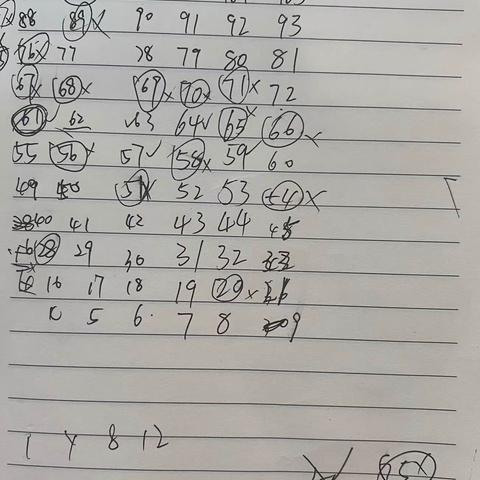 88 89x 90 91 92 93
76x 77 78 79 80 81
67x 68x 69x 70x 71x 72
61✓ 62 63 64✓ 65x 66x
55 56x 57✓ 58x 59✓ 60
49 50 51x 52 53 54x
40 41 42 43 44 45
28 29 30 31 32
16 17 18 19 20x
5 6. 7 8 9
1 Y 8 12